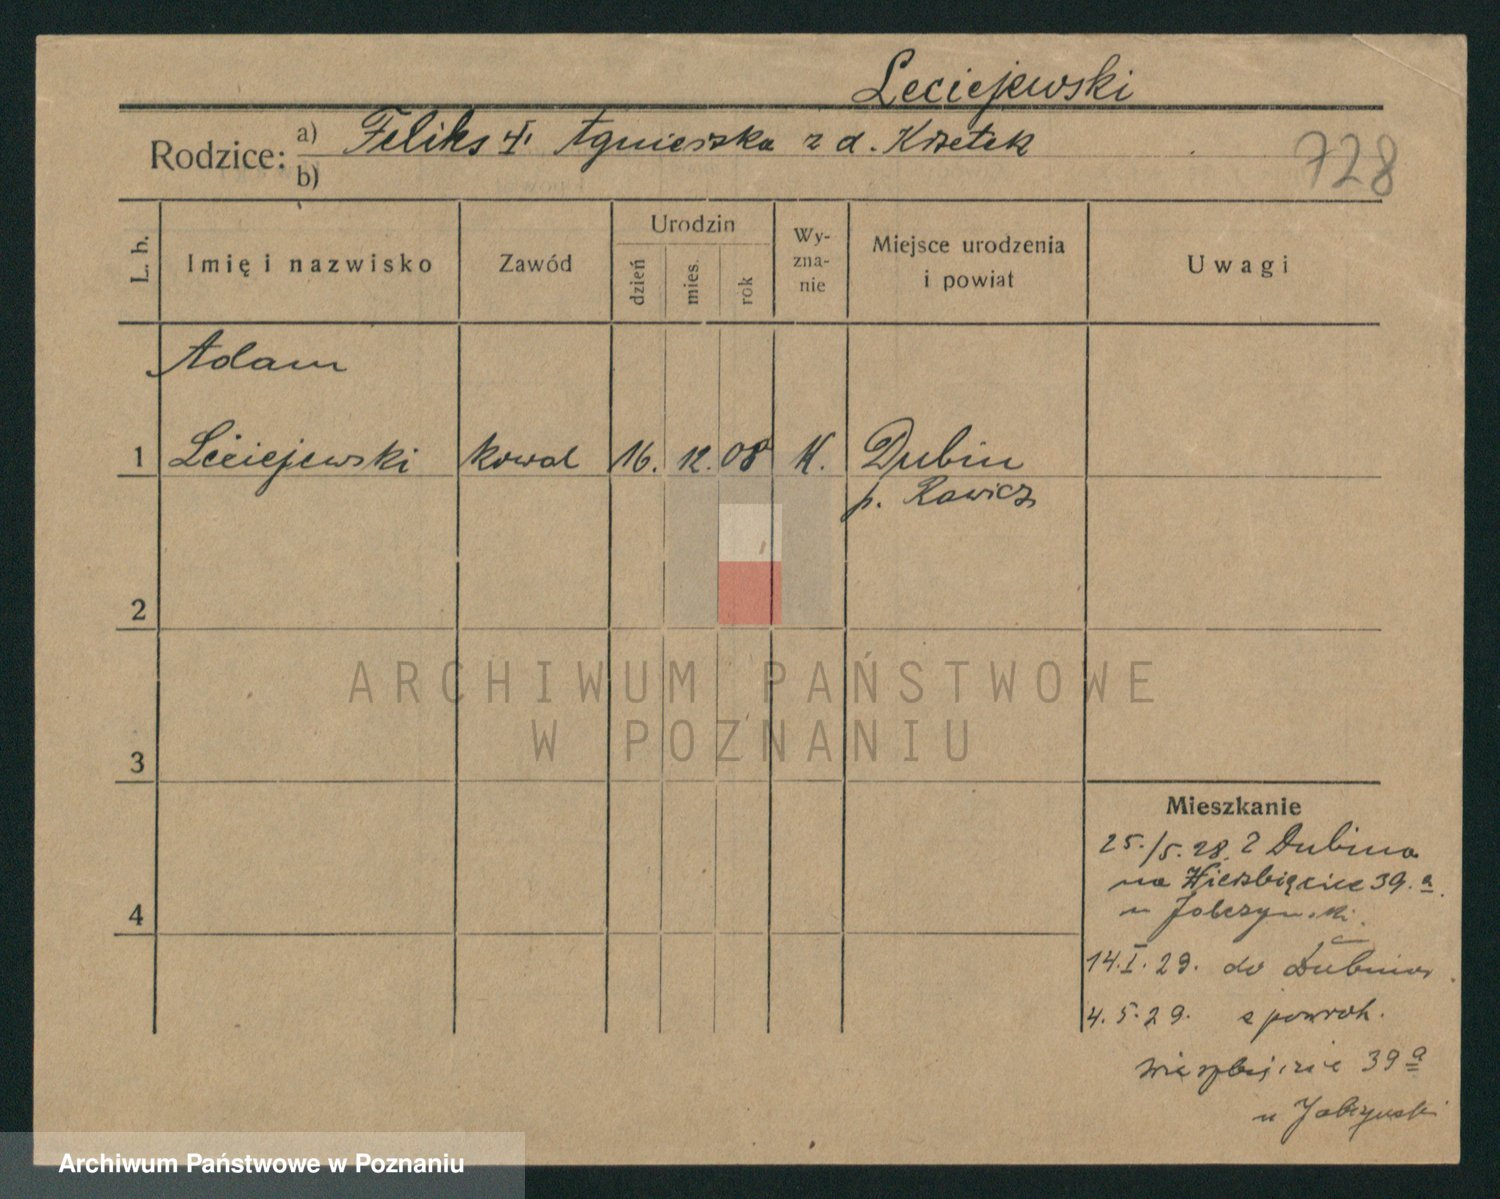 Leciejewski
Rodzice: a) Feliks i Agnieszka z d. Krzetek
b)
728
L. b.
Imię i nazwisko
Zawód
Urodzin
dzień
mies.
rok
Wy-
zna-
nie
Miejsce urodzenia
i powiat
Uwagi
Adam
1 Leciejewski kowal 16. 12. 08 K. Dubin
p. Rawicz
2
ARCHIWUM PAŃSTWOWE
W POZNANIU
3
4
Mieszkanie
25./5. 28. z Dubina
na Wierzbięcice 39.a
u
14.I.29. do Dubina
4.5.29. z powrot.
39a
u
Archiwum Państwowe w Poznaniu